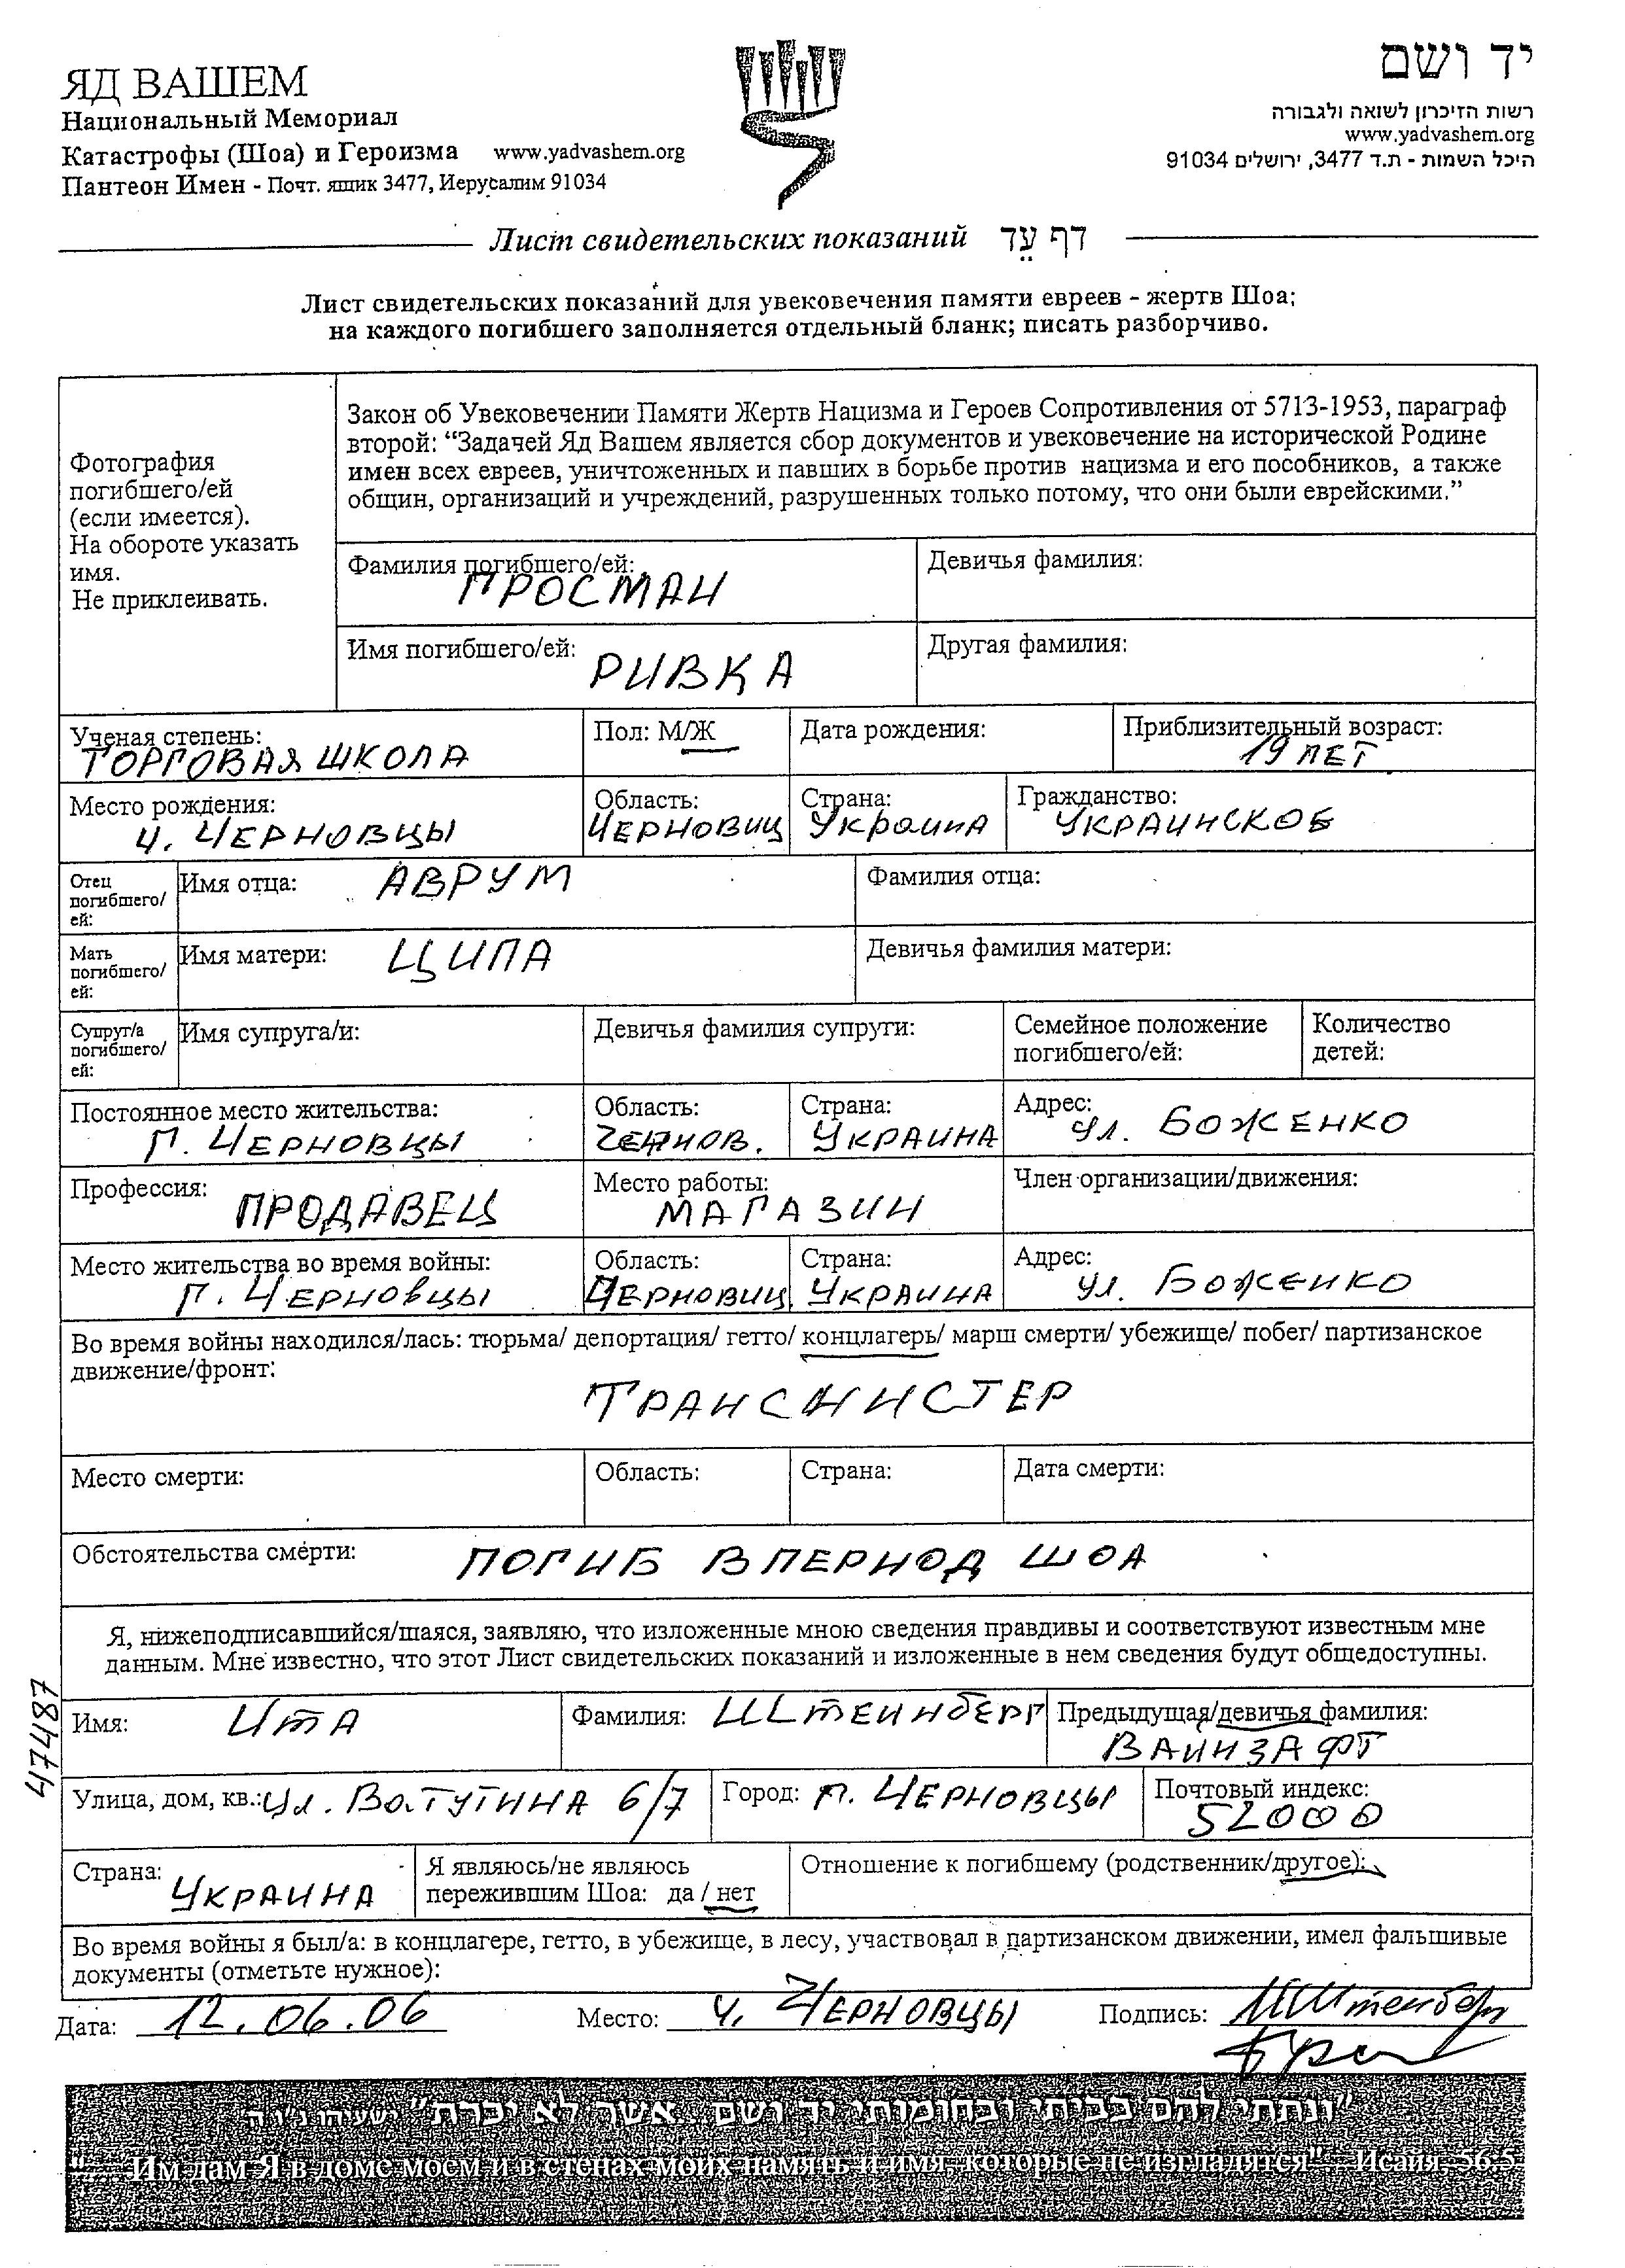 ЯД ВАШЕМ
Национальный Мемориал
Катастрофы (Шоа) и Героизма www.yadvashem.org
Пантеон Имен - Почт. ящик 3477, Иерусалим 91034
יד ושם
רשות הזיכרון לשואה ולגבורה
www.yadvashem.org
היכל השמות - ת.ד 3477, ירושלים 91034
Лист свидетельских показаний דף עֵד
Лист свидетельских показаний для увековечения памяти евреев - жертв Шоа;
на каждого погибшего заполняется отдельный бланк; писать разборчиво.
Фотография
погибшего/ей
(если имеется).
На обороте указать
имя.
Не приклеивать.
Закон об Увековечении Памяти Жертв Нацизма и Героев Сопротивления от 5713-1953, параграф
второй: “Задачей Яд Вашем является сбор документов и увековечение на исторической Родине
имен всех евреев, уничтоженных и павших в борьбе против нацизма и его пособников, а также
общин, организаций и учреждений, разрушенных только потому, что они были еврейскими.”
Фамилия погибшего/ей: Девичья фамилия:
ПРОСМАН
Имя погибшего/ей: РИВКА Другая фамилия:
Ученая степень: Пол: М/Ж Дата рождения: Приблизительный возраст:
ТОРГОВАЯ ШКОЛА 19 ЛЕТ
Место рождения: Область: Страна: Гражданство:
Ч. ЧЕРНОВЦЫ ЧЕРНОВИЦ УКРАИНА УКРАИНСКОЕ
Отец
погибшего/
ей:
Имя отца: АВРУМ Фамилия отца:
Мать
погибшего/
ей:
Имя матери: ЦИПА Девичья фамилия матери:
Супруг/а
погибшего/
ей:
Имя супруга/и: Девичья фамилия супруги: Семейное положение
погибшего/ей: Количество
детей:
Постоянное место жительства: Область: Страна: Адрес:
Г. ЧЕРНОВЦЫ ЧЕРНОВ. УКРАИНА ул. БОЖЕНКО
Профессия: ПРОДАВЕЦ Место работы: Член организации/движения:
МАГАЗИН
Место жительства во время войны: Область: Страна: Адрес:
Г. ЧЕРНОВЦЫ ЧЕРНОВИЦ. УКРАИНА ул. БОЖЕНКО
Во время войны находился/лась: тюрьма/ депортация/ гетто/ концлагерь/ марш смерти/ убежище/ побег/ партизанское
движение/фронт:
ТРАНСНИСТЕР
Место смерти: Область: Страна: Дата смерти:
Обстоятельства смерти: ПОГИБ В ПЕРИОД ШОА
Я, нижеподписавшийся/шаяся, заявляю, что изложенные мною сведения правдивы и соответствуют известным мне
данным. Мне известно, что этот Лист свидетельских показаний и изложенные в нем сведения будут общедоступны.
47487
Имя: ИТА Фамилия: ШТЕИНБЕРГ Предыдущая/девичья фамилия:
ВАИНЗАФТ
Улица, дом, кв.: ул. ВАТУТИНА 6/7 Город: Г. ЧЕРНОВЦЫ Почтовый индекс:
52000
Страна: УКРАИНА Я являюсь/не являюсь
пережившим Шоа: да / нет Отношение к погибшему (родственник/другое):
Во время войны я был/а: в концлагере, гетто, в убежище, в лесу, участвовал в партизанском движении, имел фальшивые
документы (отметьте нужное):
Дата: 12.06.06 Место: Ч. ЧЕРНОВЦЫ Подпись: ИШтенберг
"ונתתי להם בביתי ובחומותי יד ושם...אשר לא יכרת" ישעיהו נ"ו ה
"... Им дам Я в доме моем и в стенах моих память и имя, которые не изгладятся" Исайя, 56:5